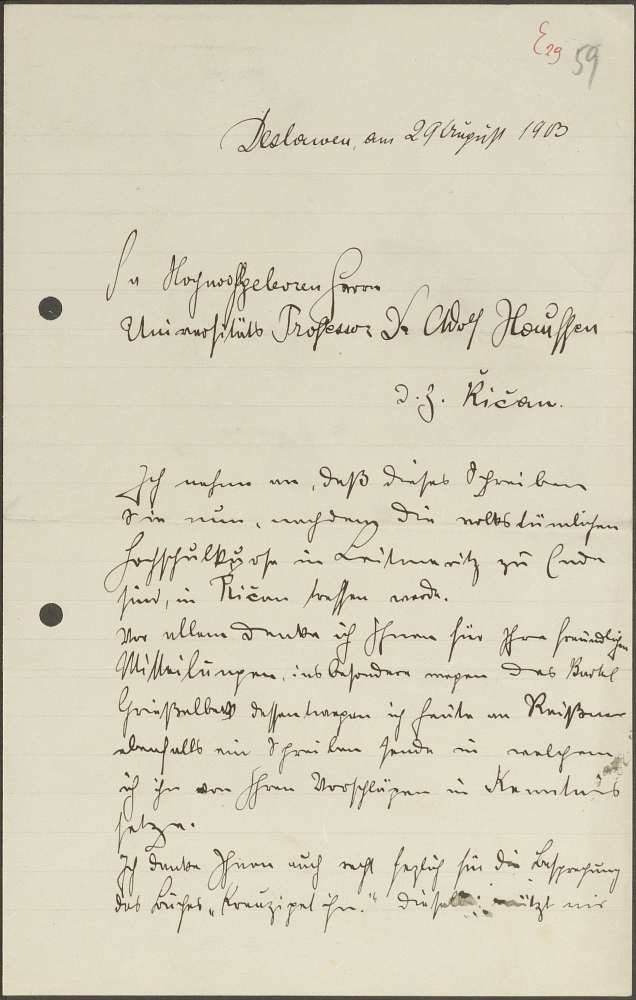 E29 59
Deslawen, am 29 August 1903
Sr Hochwohlgeboren Herrn
Universitäts Professor Dr Adolf Hauffen
d. Z. Řičan.
Ich nehme an, daß dieses Schreiben
Sie nun, nachdem die volkstümlichen
Hochschulkurse in Leitmeritz zu Ende
sind, in Řičan treffen werde.
Vor allem danke ich Ihnen für Ihre freundlichen
Mitteilungen, insbesondere wegen des Bartel
dessentwegen ich heute an
ebenfalls ein Schreiben sende in welchem
ich ihn von Ihren Vorschlägen in Kenntnis
setze.
Ich danke Ihnen auch recht herzlich für die Besprechung
des Buches „Kreuzipel ihn." Dieselbe nützt mir